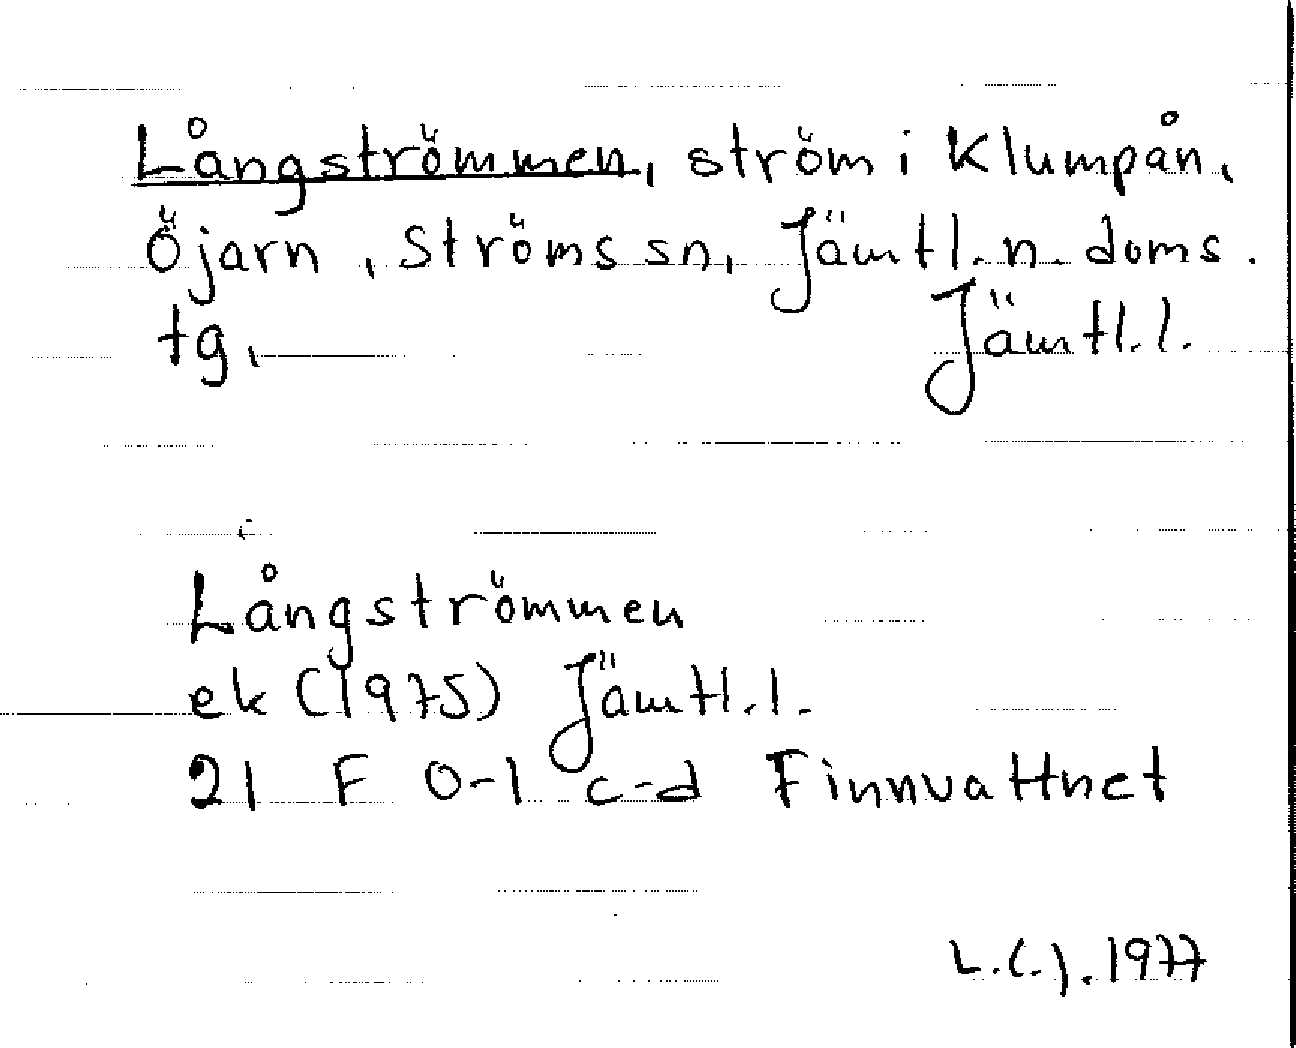 Långströmmen, ström i Klumpån,
Öjarn, Ströms sn, Jämtl. n. doms.
tg, Jämtl. l.
Långströmmen
ek (1975) Jämtl. l.
21 F 0-1 c-d Finnvattnet
1977